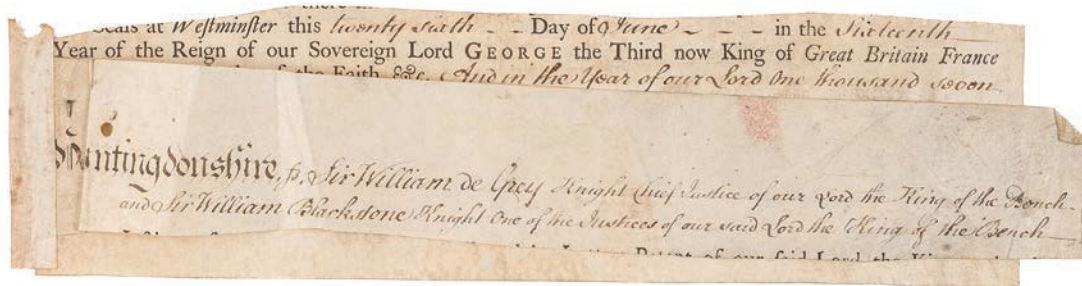 Seals at Westminster this twenty sixth - - Day of June - - - in the Sixteenth
Year of the Reign of our Sovereign Lord GEORGE the Third now King of Great Britain France
of the Faith &c. And in the Year of our Lord One thousand seven
Huntingdonshire, ſs. Sir William de Grey Knight Chief Justice of our Lord the King of the Bench
and Sir William Blackstone Knight One of the Justices of our said Lord the King of the Bench
Patent of our said Lord the King